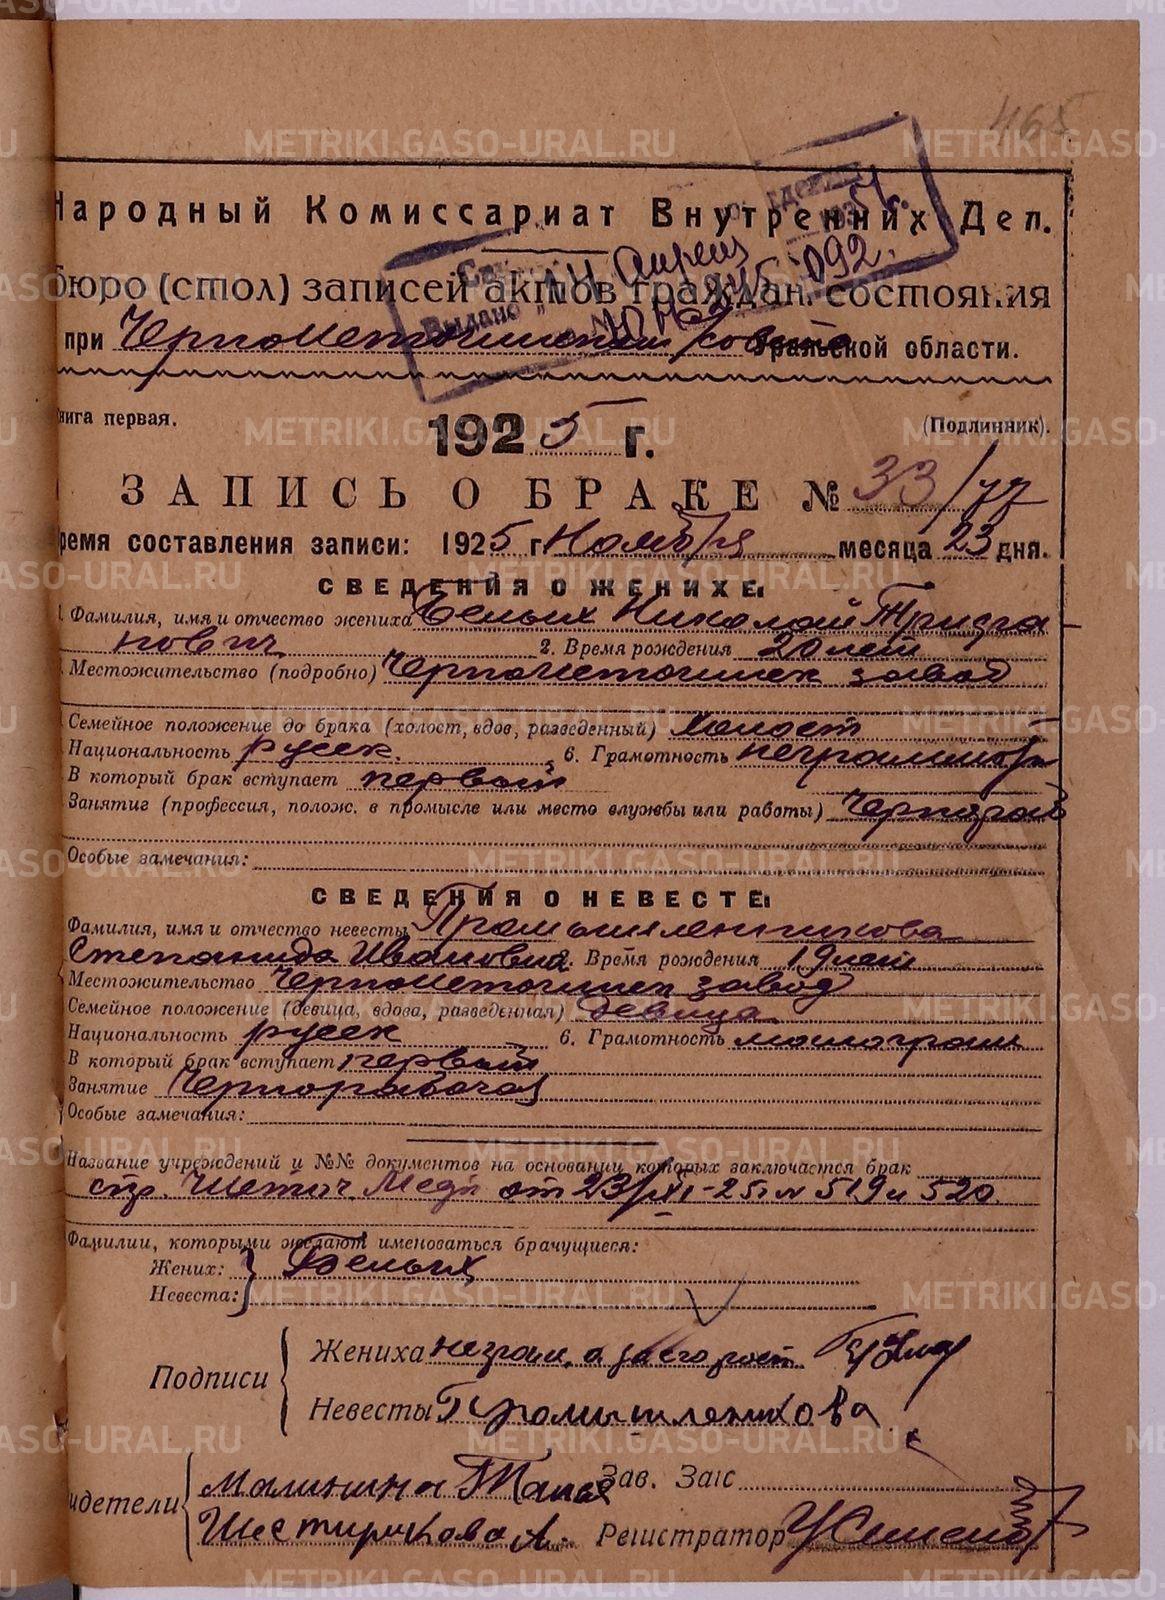 465
Народный Комиссариат Внутренних Дел.
бюро (стол) записей актов граждан. состояния
при Черноисточинском совете Уральской области.
Выдано "14" Апреля
нига первая.
(Подлинник).
1925 г.
ЗАПИСЬ О БРАКЕ № 33/77
ремя составления записи: 1925 г. Ноября месяца 23 дня.
СВЕДЕНИЯ О ЖЕНИХЕ:
1. Фамилия, имя и отчество жениха Белых Николай Трифа
нович 2. Время рождения 20 лет
Местожительство (подробно) Черноисточинск завод
Семейное положение до брака (холост, вдов, разведенный) Холост
Национальность русск. 6. Грамотность неграмотн
В который брак вступает первый
Занятие (профессия, полож. в промысле или место службы или работы) Чернораб
Особые замечания:
СВЕДЕНИЯ О НЕВЕСТЕ:
Фамилия, имя и отчество невесты Промышленникова
Степанида Ивановна 2. Время рождения 19 лет
Местожительство Черноисточинск завод
Семейное положение (девица, вдова, разведенная) девица
Национальность русск 6. Грамотность малограм
В который брак вступает первый
Занятие Чернорабочая
Особые замечания:
Название учреждений и №№ документов на основании которых заключается брак
от 23/XI-25 г. № 519 и 520
Фамилии, которыми желают именоваться брачущиеся:
Жених: Белых
Невеста:
Подписи
Жениха неграм. а за его рост
Невесты Промышленикова
идетели
Малинина Зав. Загс
Регистратор